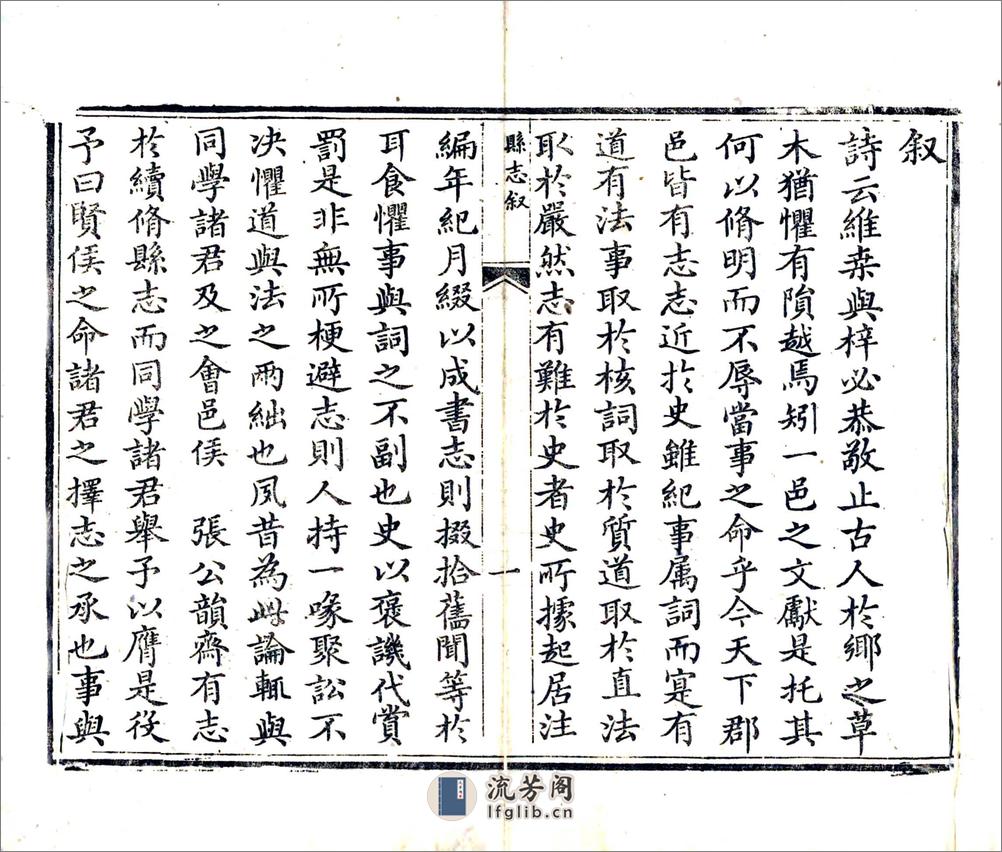 叙
詩云維桒與梓必恭敬止古人於鄉之草
木猶懼有隕越焉矧一邑之文獻是托其
何以脩明而不辱當事之命乎今天下郡
邑皆有志志近於史雖紀事属詞而寔有
道有法事取於核詞取於質道取於直法
取於嚴然志有難於史者史所據起居注
縣志叙
一
編年紀月綴以成書志則掇拾舊聞等於
耳食懼事與詞之不副也史以褒譏代賞
罰是非無所梗避志則人持一喙聚訟不
决懼道與法之兩絀也夙昔為此論輒與
同學諸君及之會邑侯 張公韻齋有志
於續脩縣志而同學諸君舉予以膺是役
予曰賢侯之命諸君之擇志之承也事與
流芳阁
lfglib.cn